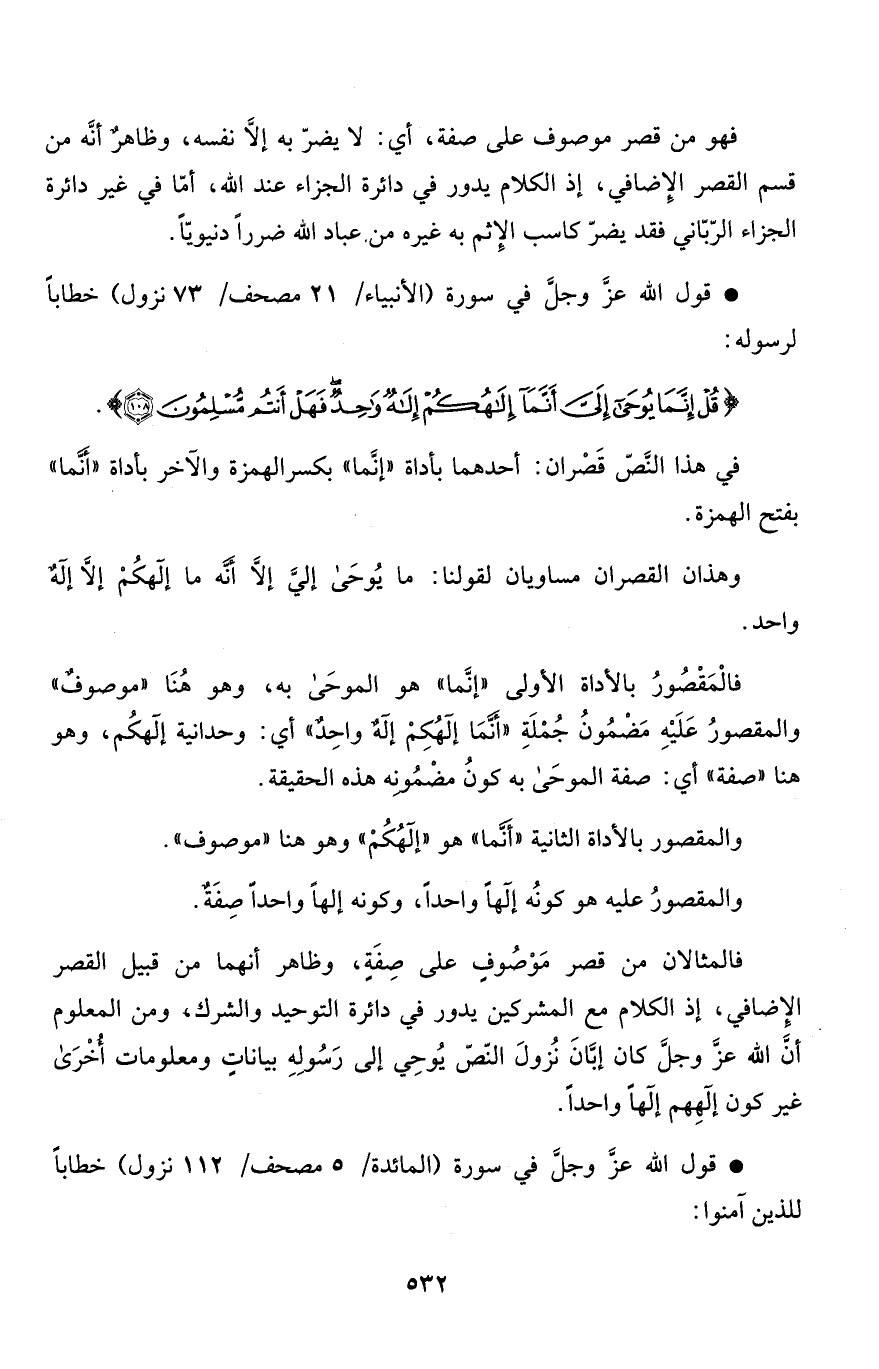 فهو من قصر موصوف على صفة، أي: لا يضرّ به إلاَّ نفسه، وظاهرٌ أنَّه من
قسم القصر الإِضافي، إذ الكلام يدور في دائرة الجزاء عند الله، أمّا في غير دائرة
الجزاء الرّبّاني فقد يضرّ كاسب الإِثم به غيره من عباد الله ضرراً دنيويّاً.
● قول الله عزَّ وجلَّ في سورة (الأنبياء/ ٢١ مصحف/ ٧٣ نزول) خطاباً
لرسوله:
﴿قُلْ إِنَّمَا يُوحَىٰٓ إِلَىَّ أَنَّمَآ إِلَٰهُكُمْ إِلَٰهٌ وَٰحِدٌ ۖ فَهَلْ أَنتُم مُّسْلِمُونَ ١٠٨﴾.
في هذا النَّصّ قَصْران: أحدهما بأداة «إنَّما» بكسرالهمزة والآخر بأداة «أَنَّما»
بفتح الهمزة.
وهذان القصران مساويان لقولنا: ما يُوحَىٰ إليَّ إلاَّ أَنَّه ما إلَهكُمْ إلاَّ إلَهٌ
واحد.
فالْمَقْصُورُ بالأداة الأولى «إنَّما» هو الموحَىٰ به، وهو هُنَا «موصوفٌ»
والمقصورُ عَلَيْهِ مَضْمُونُ جُمْلَةِ «أَنَّمَا إلَهُكِمْ إلَهٌ واحِدٌ» أي: وحدانية إلَهكُم، وهو
هنا «صفة» أي: صفة الموحَىٰ به كونُ مضْمُونِه هذه الحقيقة.
والمقصور بالأداة الثانية «أَنَّما» هو «إلَهُكُمْ» وهو هنا «موصوف».
والمقصورُ عليه هو كونُه إلَهاً واحداً، وكونه إلهاً واحداً صِفَةٌ.
فالمثالان من قصر مَوْصُوفٍ على صِفَةٍ، وظاهر أنهما من قبيل القصر
الإِضافي، إذ الكلام مع المشركين يدور في دائرة التوحيد والشرك، ومن المعلوم
أنَّ الله عزَّ وجلَّ كان إبَّانَ نُزولَ النّصّ يُوحِي إلى رَسُولِهِ بياناتٍ ومعلومات أُخْرَىٰ
غير كون إلَهِهم إلَهاً واحداً.
● قول الله عزَّ وجلَّ في سورة (المائدة/ ٥ مصحف/ ١١٢ نزول) خطاباً
للذين آمنوا:
٥٣٢